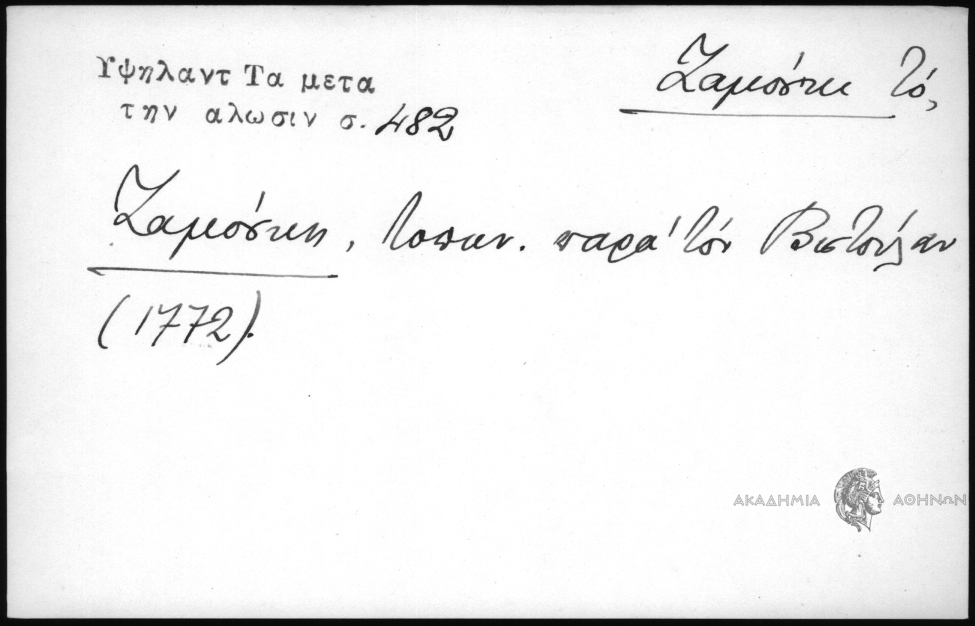 Υψηλαντ Τα μετα
την αλωσιν σ. 482
Ζαμόστη τό,
Ζαμόστη, τοπων. παρά τόν Βιστούλαν
(1772).
ΑΚΑΔΗΜΙΑ ΑΘΗΝΩΝ